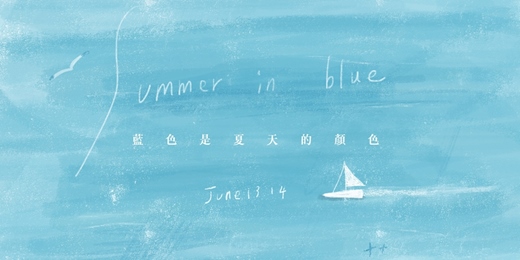 Summer in blue
藍色是夏天的顏色
June 13 14